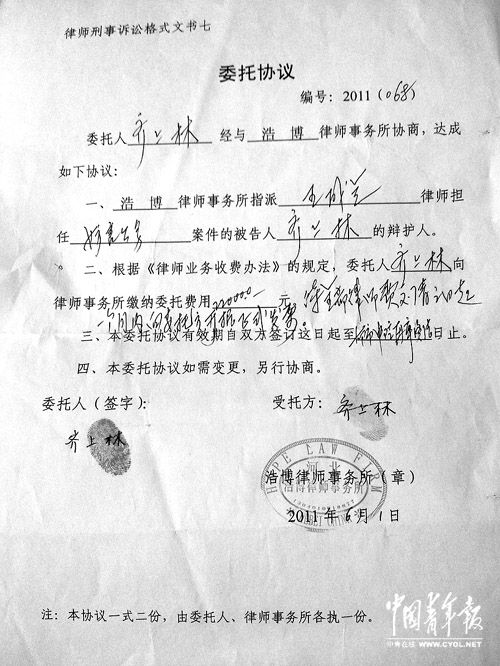 律师刑事诉讼格式文书七
委托协议
编号：2011（068）
委托人 齐上林 经与 浩 博 律师事务所协商，达成
如下协议：
一、 浩 博 律师事务所指派 律师担
任 妨害公务 案件的被告人 齐上林 的辩护人。
二、根据《律师业务收费办法》的规定，委托人 齐上林 向
律师事务所缴纳委托费用 元
三、本委托协议有效期自双方签订这日起至 日止。
四、本委托协议如需变更，另行协商。
委托人（签字）：
受托方： 齐上林
齐上林
HOPE LAW FIRM
河北
浩博律师事务所
HEBEI CHINA
浩博律师事务所（章）
2011 年 6 月 1 日
注：本协议一式二份，由委托人、律师事务所各执一份。
中国青年报
中青在线 WWW.CYOL.NET